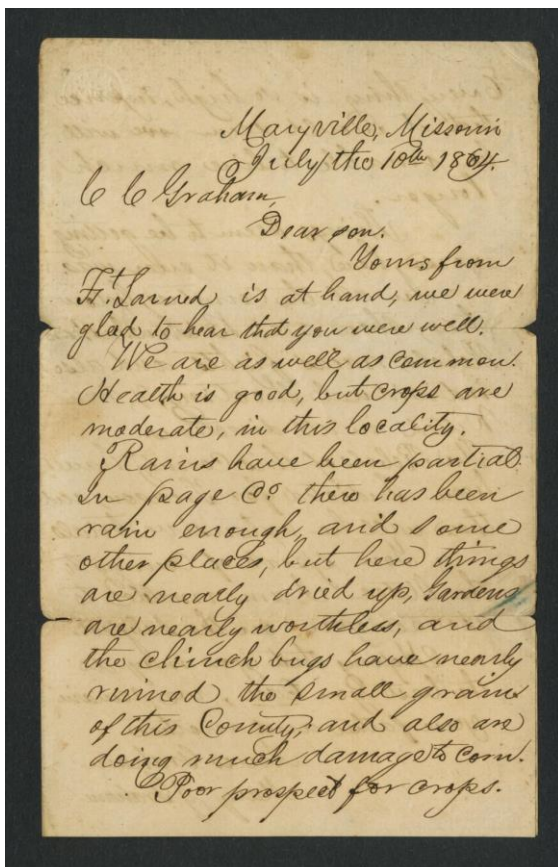 Maryville, Missouri
July the 10th 1864.
C C Graham,
Dear son.
Yours from
Ft. Larned is at hand, we were
glad to hear that you were well.
We are as well as common.
Health is good, but crops are
moderate, in this locality.
Rains have been partial.
In page Co there has been
rain enough, and some
other places, but here things
are nearly dried up, Gardens
are nearly worthless, and
the chinch bugs have nearly
ruined the small grain
of this County, and also are
doing much damage to corn.
Poor prospect for crops.